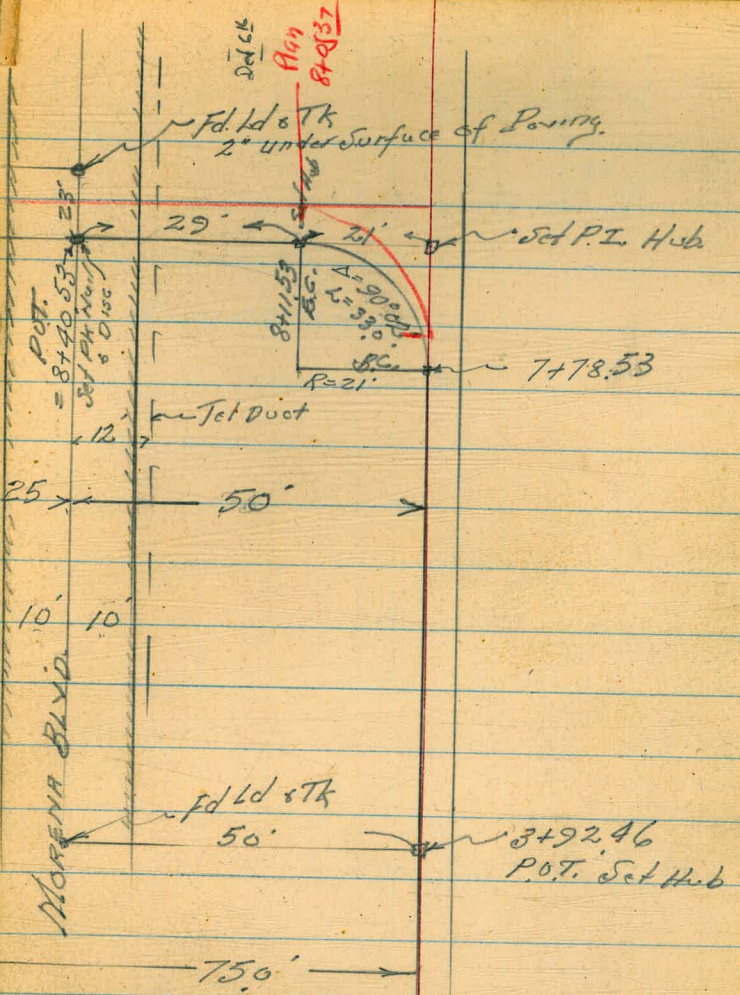 Plan
8+0537
Fd. Ld & Tk
2" under Surface of Paving.
23'
29'
21'
Set P.I. Hub
P.O.T.
= 8+40.53
Set PK Nail
& Disc
8+11.53
E.C.
Δ=90°00'
L=33.0'
B.C.
R=21'
7+78.53
Tel Duct
12'
25
50'
10'
10'
MORENA BLVD.
Fd Ld & Tk
50'
3+92.46
P.O.T. Set Hub
75.0'